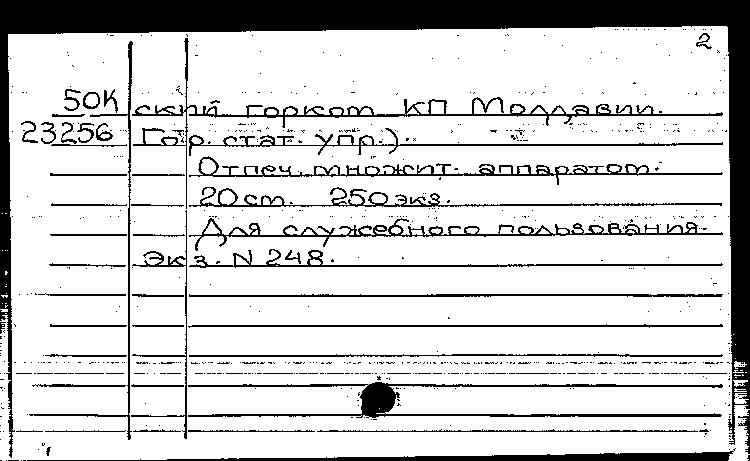 2
50К ский горком КП Молдавии.
23256 Гор. стат. упр.).
Отпеч. множит. аппаратом.
20 ст. 250 экз.
Для служебного пользования.
Экз. N 248.